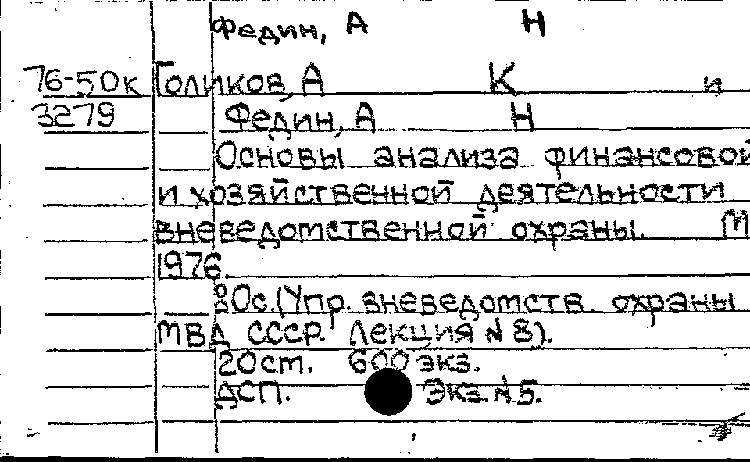 Федин, А Н
76-50к Голиков, А К и
3279 Федин, А Н
Основы анализа финансовой
и хозяйственной деятельности
вневедомственной охраны. М
1976.
20с. (Упр. вневедомств. охраны
МВД СССР. Лекция № 8).
20ст. 600 экз.
ДСП. Экз. № 5.